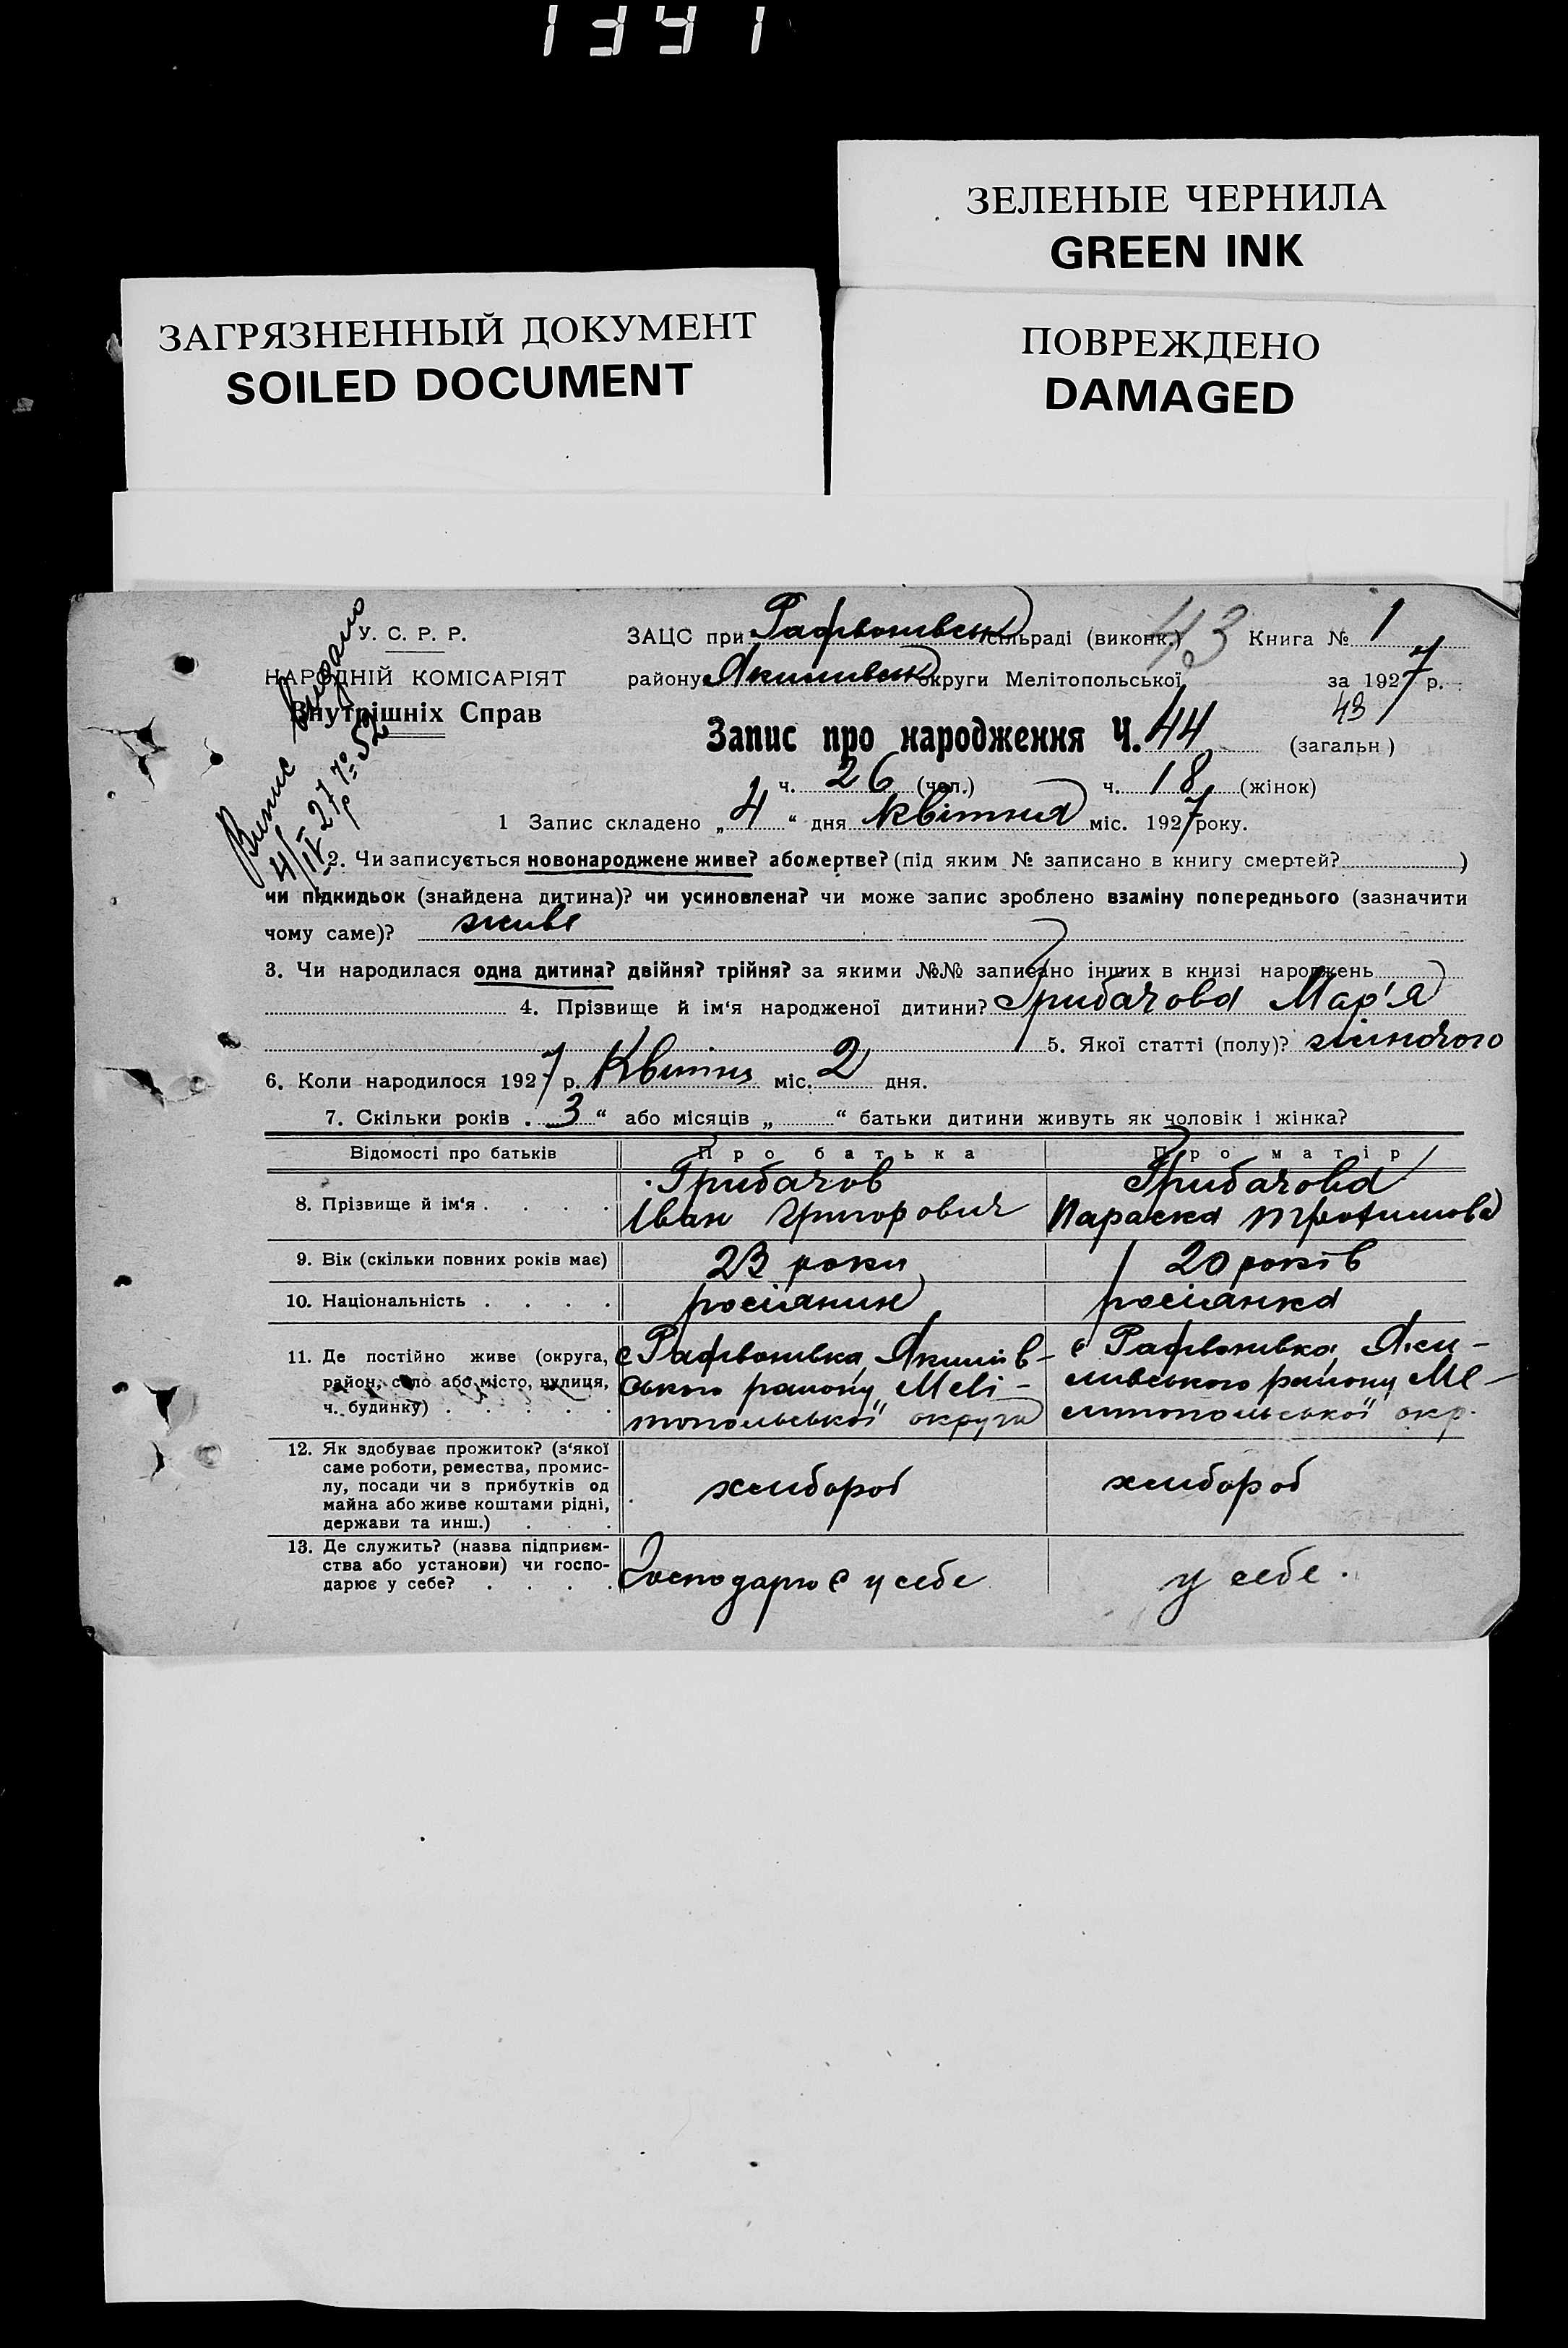 1341
ЗЕЛЕНЫЕ ЧЕРНИЛА
GREEN INK
ЗАГРЯЗНЕННЫЙ ДОКУМЕНТ
SOILED DOCUMENT
ПОВРЕЖДЕНО
DAMAGED
Випис видано
4/IV 27 р № 52
У. С. Р. Р.
НАРОДНІЙ КОМІСАРІЯТ
Внутрішніх Справ
ЗАЦС при Рафвонивськ сільраді (виконк.) 43 Книга № 1
району Якимивськ округи Мелітопольської за 1927 р.
43
Запис про народження Ч. 44 (загальн)
ч. 26 (чол.) ч. 18 (жінок)
1 Запис складено „4“ дня квітня міс. 1927 року.
2. Чи записується новонароджене живе? або мертве? (під яким № записано в книгу смертей? )
чи підкидьок (знайдена дитина)? чи усиновлена? чи може запис зроблено взаміну попереднього (зазначити
чому саме)? живе
3. Чи народилася одна дитина? двійня? трійня? за якими №№ записано інших в книзі народжень
4. Прізвище й ім‘я народженої дитини? Грибачова Мар'я
5. Якої статті (полу)? жіночого
6. Коли народилося 1927 р. Квітня міс. 2 дня.
7. Скільки років „3“ або місяців „ “ батьки дитини живуть як чоловік і жінка?
Відомості про батьків Про батька Про матір
8. Прізвище й ім‘я . . . . Грибачов Грибачова
Іван Григорович Параска Трофимова
9. Вік (скільки повних років має) 23 роки 20 років
10. Національність . . . . росіянин росіянка
11. Де постійно живе (округа, с Рафвонивка, Якимів- с Рафвонивка, Яки-
район, село або місто, вулиця, ського району Мелі- мивського району Ме-
ч. будинку) . . . . . топольської округи литопольської окр.
12. Як здобуває прожиток? (з‘якої
саме роботи, ремества, промис-
лу, посади чи з прибутків од хлибороб хлибороб
майна або живе коштами рідні,
держави та инш.) . . .
13. Де служить? (назва підприєм-
ства або установи) чи госпо- Господарює у себе у себе.
дарює у себе? . . . .